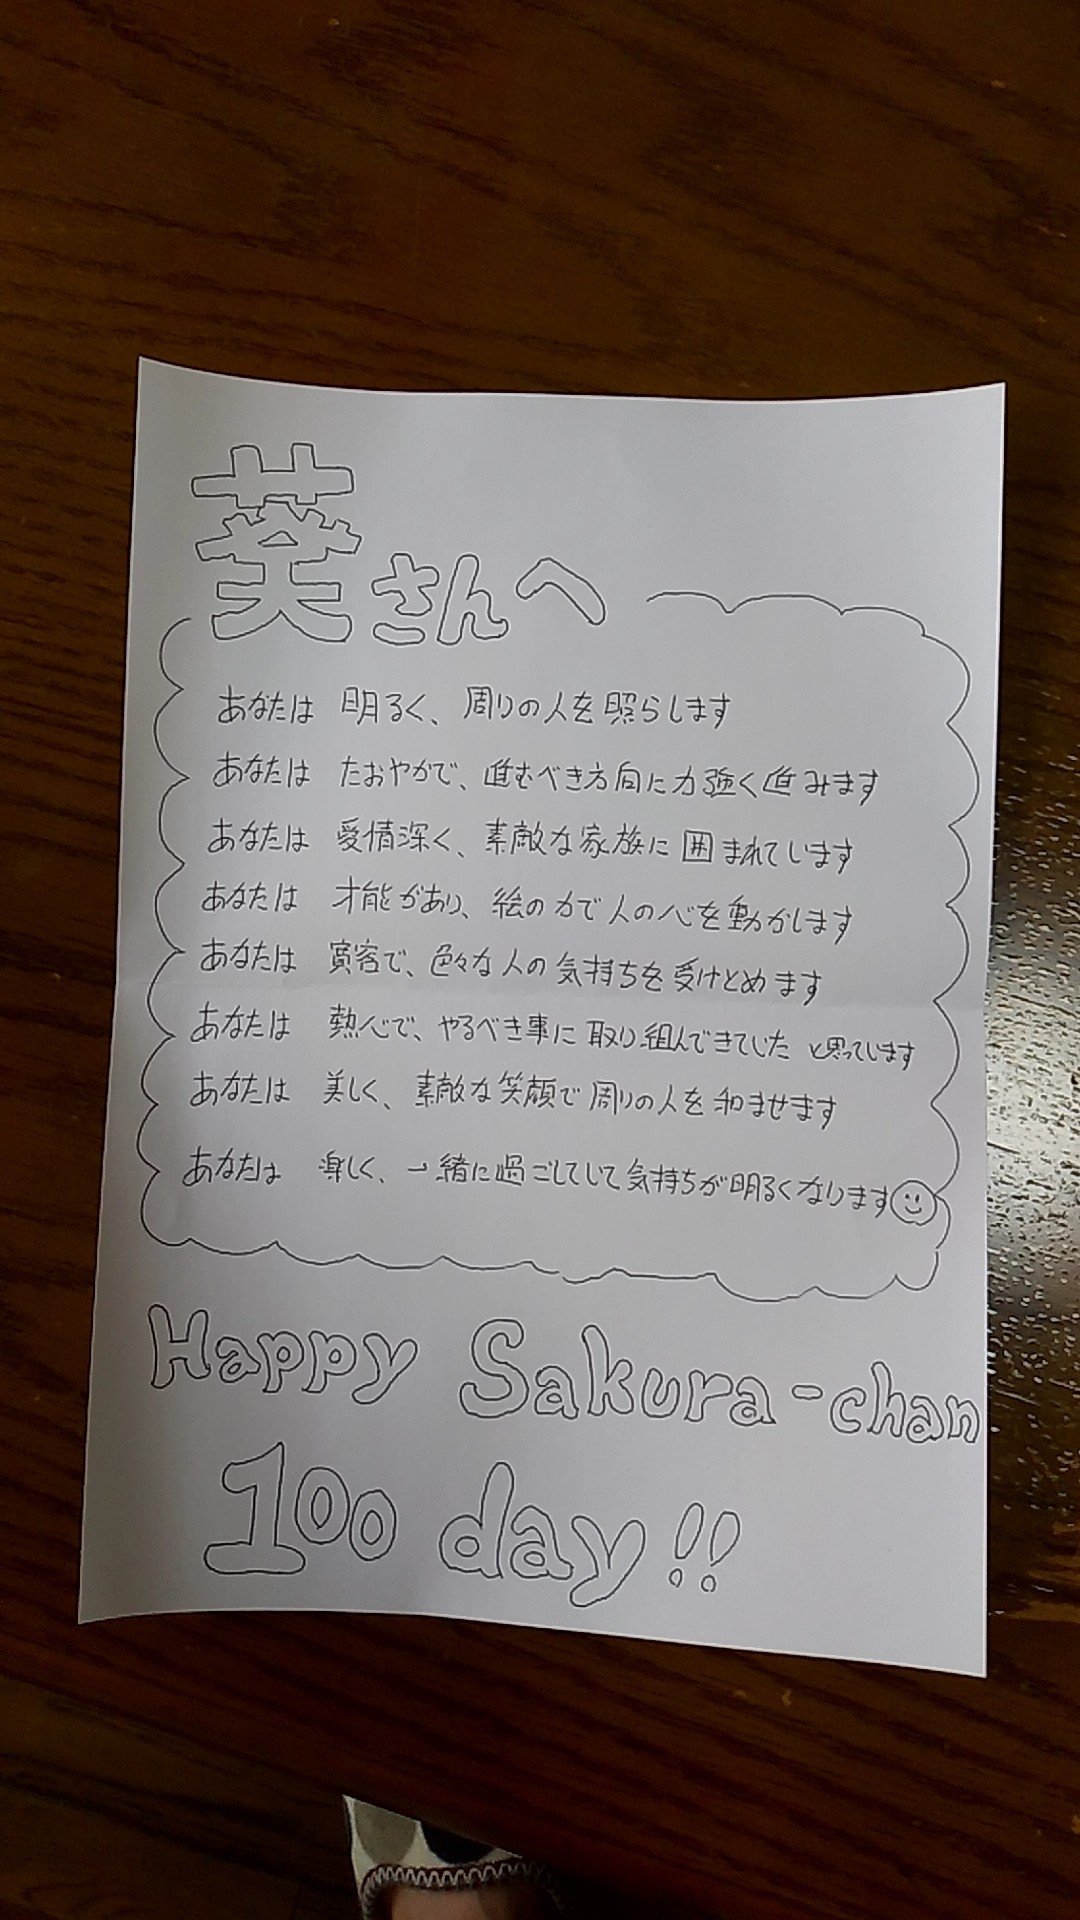 葵さんへ
あなたは 明るく、周りの人を照らします
あなたは たおやかで、進むべき方向に力強く進みます
あなたは 愛情深く、素敵な家族に囲まれています
あなたは 才能があり、絵の力で人の心を動かします
あなたは 寛容で、色々な人の気持ちを受けとめます
あなたは 熱心で、やるべき事に取り組んできていた と思っています
あなたは 美しく、素敵な笑顔で周りの人を和ませます
あなたは 楽しく、一緒に過ごしていて気持ちが明るくなります
Happy Sakura-chan
100 day!!